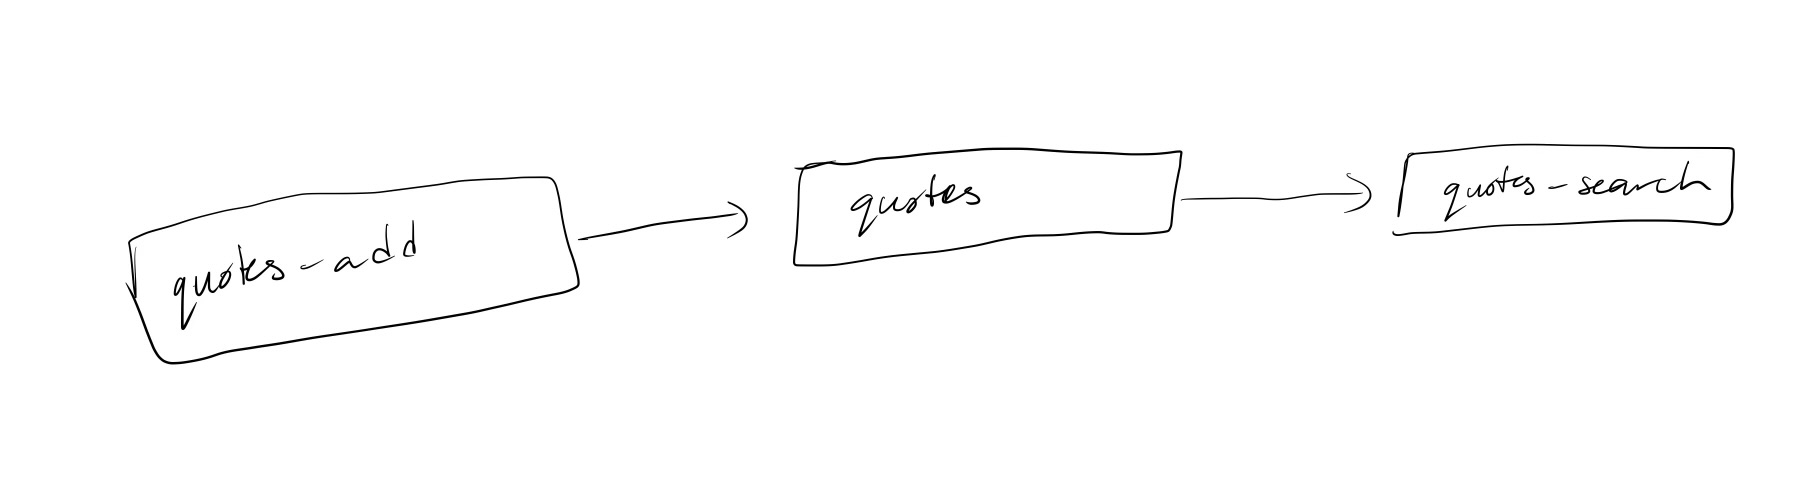 quotes-add
quotes
quotes-search